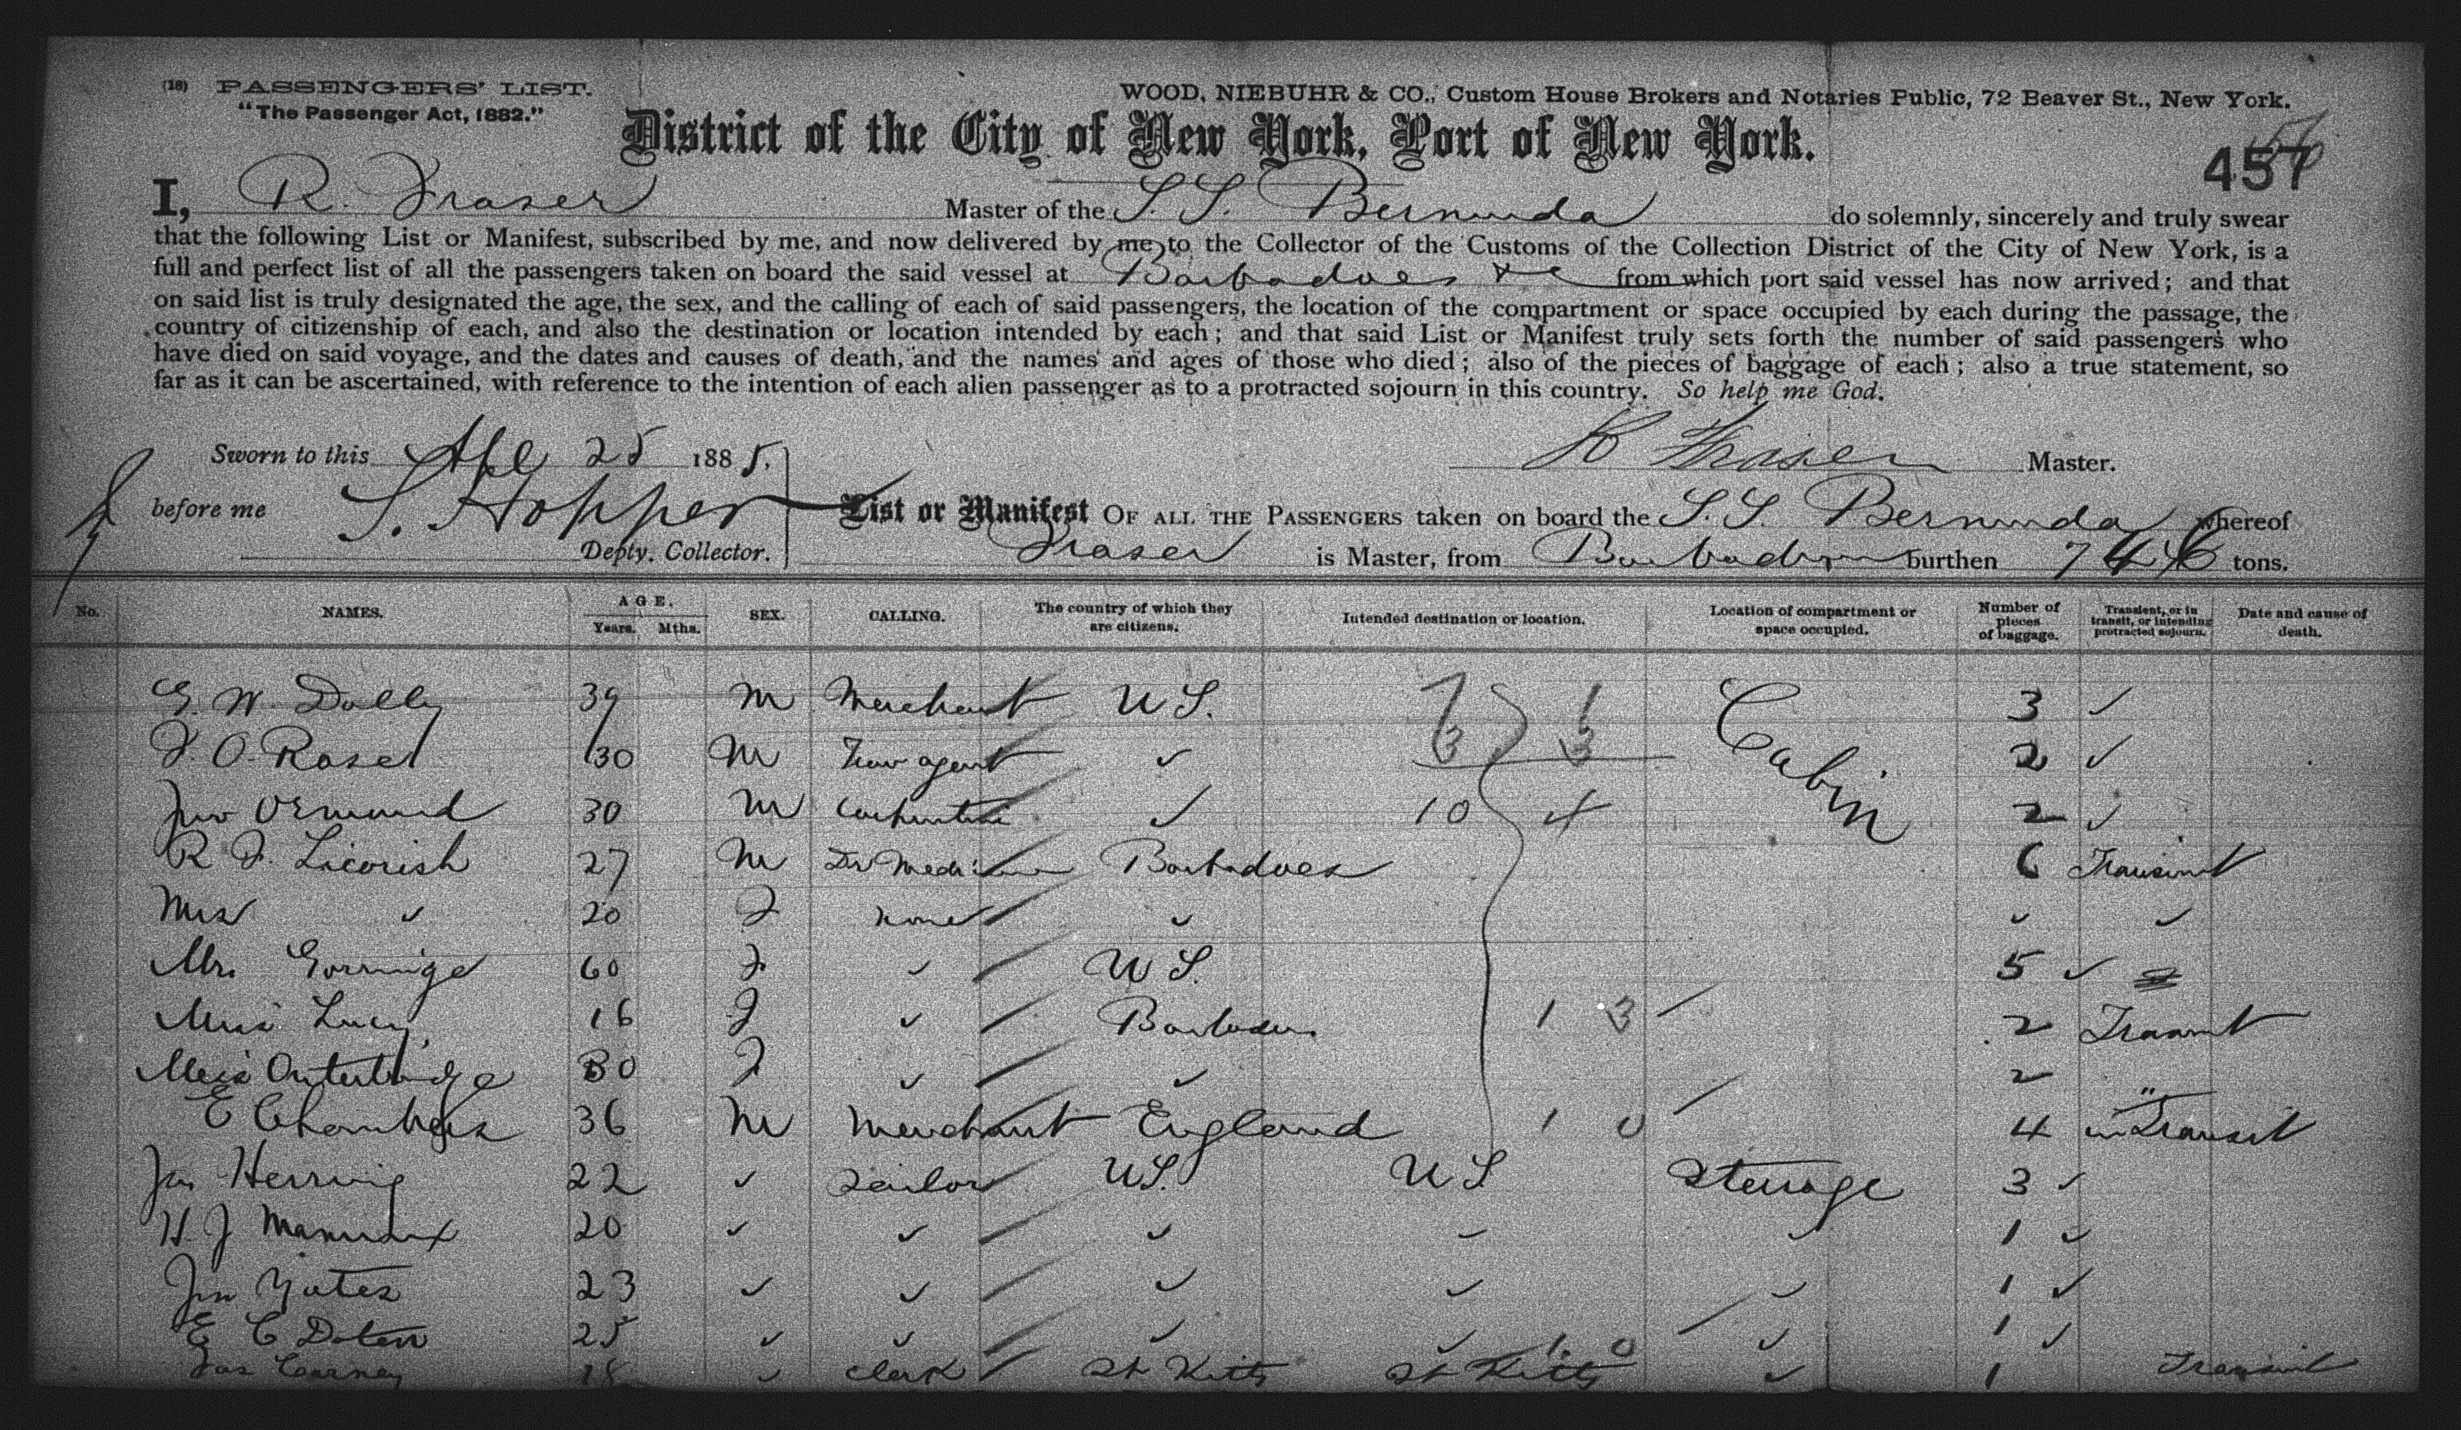 (18) PASSENGERS' LIST.
"The Passenger Act, 1882."
WOOD, NIEBUHR & CO., Custom House Brokers and Notaries Public, 72 Beaver St., New York.
District of the City of New York, Port of New York.
457
I, R. Fraser Master of the S. S. Bermuda do solemnly, sincerely and truly swear
that the following List or Manifest, subscribed by me, and now delivered by me to the Collector of the Customs of the Collection District of the City of New York, is a
full and perfect list of all the passengers taken on board the said vessel at Barbadoes &c from which port said vessel has now arrived; and that
on said list is truly designated the age, the sex, and the calling of each of said passengers, the location of the compartment or space occupied by each during the passage, the
country of citizenship of each, and also the destination or location intended by each; and that said List or Manifest truly sets forth the number of said passengers who
have died on said voyage, and the dates and causes of death, and the names and ages of those who died; also of the pieces of baggage of each; also a true statement, so
far as it can be ascertained, with reference to the intention of each alien passenger as to a protracted sojourn in this country. So help me God.
Sworn to this Apl 25 1885.
R Fraser Master.
before me S. Hopper
Depty. Collector.
List or Manifest OF ALL THE PASSENGERS taken on board the S. S. Bermuda whereof
Fraser is Master, from Barbadoes burthen 746 tons.
No. NAMES. AGE. Years. Mths. SEX. CALLING. The country of which they are citizens. Intended destination or location. Location of compartment or space occupied. Number of pieces of baggage. Transient, or in transit, or intending protracted sojourn. Date and cause of death.
G. W. Dally 39 M Merchant U S. Cabin 3 ✓
F. O. Rosel 30 M agent ✓ 2 ✓
Jno Ormund 30 M ✓ 10 4 2 ✓
R F. Licorish 27 M Dr Medicine Barbadoes 6 Transient
Mrs ✓ 20 F none ✓ ✓ ✓
Mrs Gorringe 60 F ✓ U S. 5 ✓
Miss Lucy 16 F ✓ Barbadoes 1 3 2 Transit
Miss Outerbridge 30 F ✓ ✓ 2 "
E Chambers 36 M Merchant England 1 0 4 in Transit
Jas Herring 22 ✓ Sailor U S. U S Steerage 3 ✓
H. J 20 ✓ ✓ ✓ ✓ ✓ 1 ✓
Jno Yates 23 ✓ ✓ ✓ ✓ ✓ 1 ✓
E C Doten 25 ✓ ✓ ✓ ✓ 1 0 ✓ 1 ✓
Jas Carney 18 ✓ Clerk St Kitts St Kitts ✓ 1 Transit